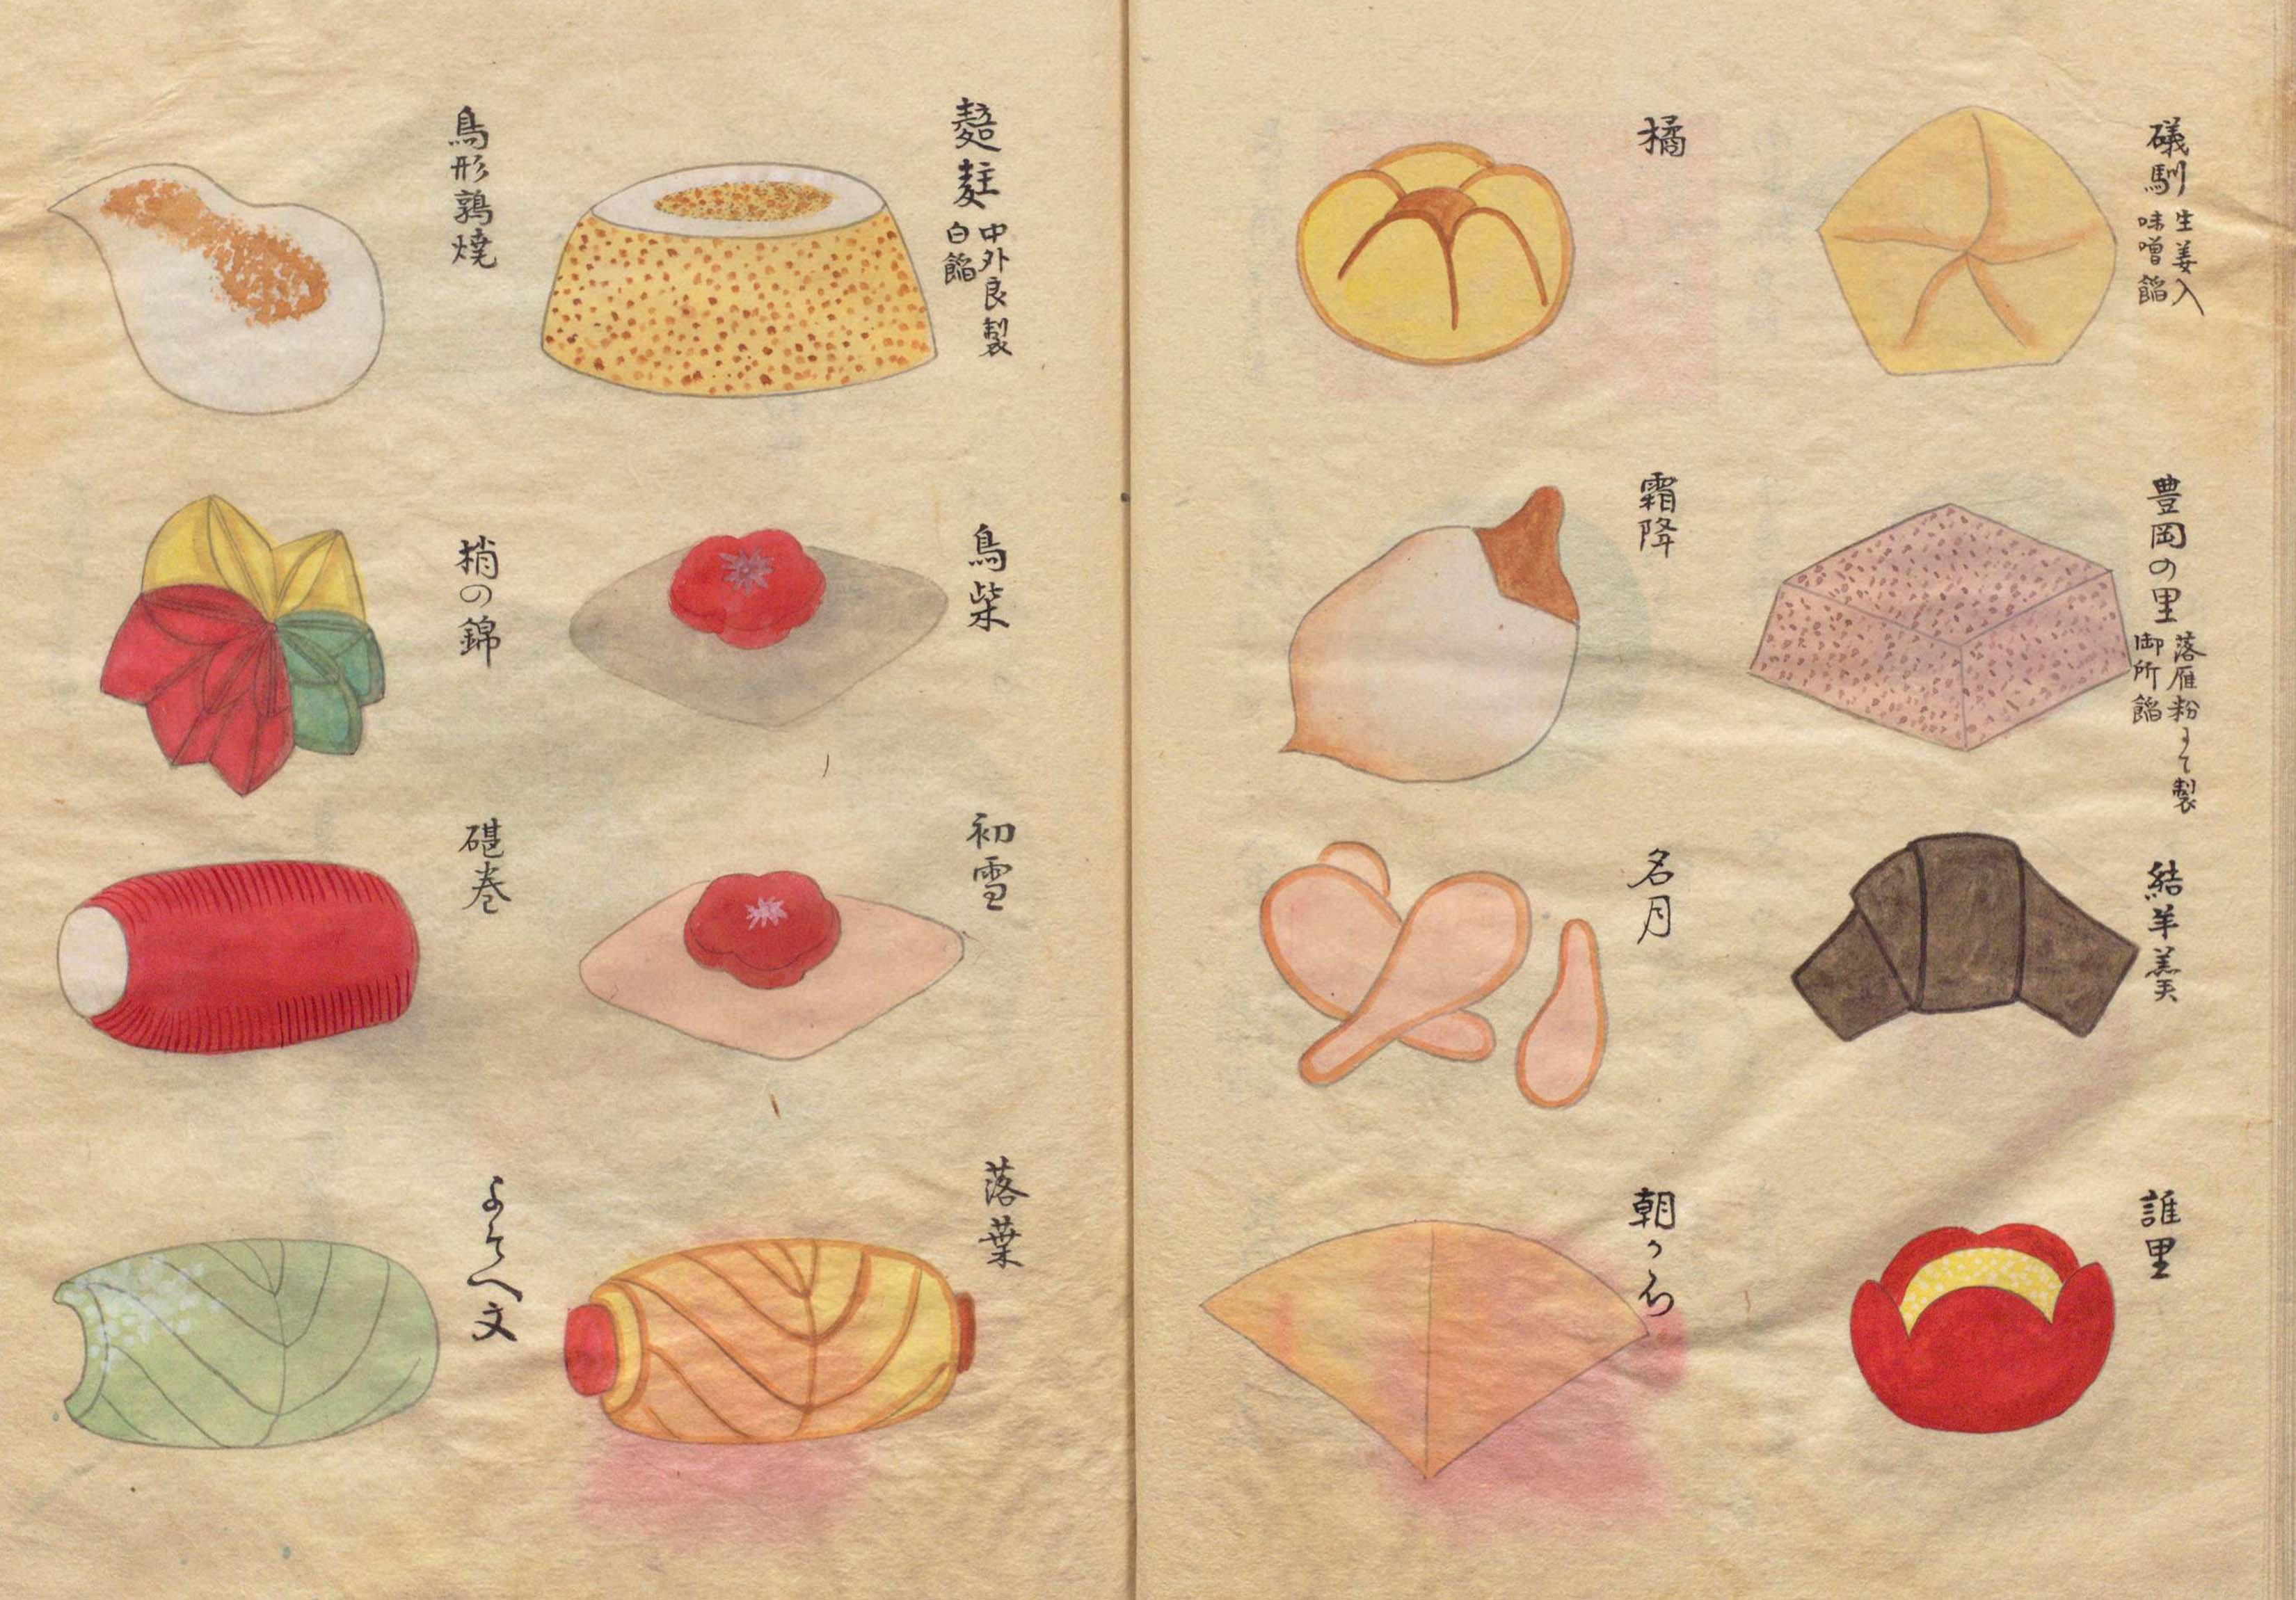 磯馴
生姜入
味噌餡
豊岡の里
落雁粉にて製
御所餡
結羊羹
誰里
橘
霜降
名月
中外良製
白餡
鳥柴
初雪
落葉
鳥形鶉焼
梢の錦
碪巻
よそへ文